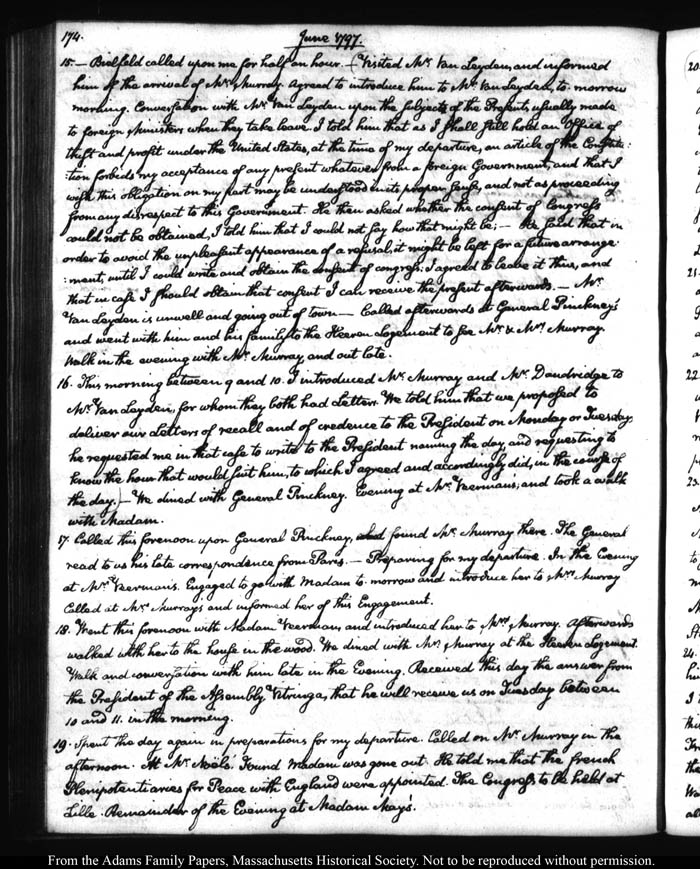 174.
June 1797.
15. — Bielfeld called upon me for half an hour. — (Visited Mr. Van Leyden, and informed
him of the arrival of Mr. Murray. Agreed to introduce him to Mr. Van Leyden, to-morrow
morning. Conversation with Mr. Van Leyden upon the subject of the Presents, usually made
to foreign Ministers when they take leave. I told him that as I shall still hold an Office of
trust and profit under the United States, at the time of my departure, an article of the Constitu:
:tion forbids my acceptance of any present whatever from a foreign Government, and that I
wish this obligation on my part may be understood in its proper sense, and not as proceeding
from any disrespect to this Government. He then asked whether the consent of Congress
could not be obtained, I told him that I could not say how that might be; — He said that in
order to avoid the unpleasant appearance of a refusal, it might be left for a future arrange:
:ment, until I could write and obtain the consent of Congress; I agreed to leave it thus, and
that in case I should obtain that consent I can receive the present afterwards. — Mr.
Van Leyden is unwell and going out of town — Called afterwards at General Pinckney's
and went with him and his family to the Heeren Logement to see Mr. & Mrs. Murray.
Walk in the evening with Mr. Murray, and out late.
16. This morning between 9 and 10. I introduced Mr. Murray and Mr. Dandridge to
Mr. Van Leyden, for whom they both had Letters. We told him that we proposed to
deliver our Letters of recall and of credence to the President on Monday or Tuesday
he requested me in that case to write to the President naming the day and requesting to
know the hour that would suit him, to which I agreed and accordingly did, in the course of
the day.) — We dined with General Pinckney. Evening at Mr. Veerman's, and took a walk
with Madam.
17. Called this forenoon upon General Pinckney, and found Mr. Murray there. The General
read to us his late correspondence from Paris. — Preparing for my departure. In the Evening
at Mr. Veerman's. Engaged to go with Madam to-morrow and introduce her to Mrs. Murray
Called at Mr. Murray's and informed her of this Engagement.
18. Went this forenoon with Madam Veerman, and introduced her to Mrs. Murray. Afterwards
walked with her to the house in the wood. We dined with Mr. Murray at the Heeren Logement.
Walk and conversation with him late in the Evening. Received this day the answer from
the President of the Assembly Vitringa, that he will receive us on Tuesday between
10 and 11. in the morning.
19. Spent the day again in preparations for my departure. Called on Mr. Murray in the
afternoon. At Mr. Noël's. Found Madam was gone out. He told me that the french
Plenipotentiaries for Peace with England were appointed. The Congress to be held at
Lille. Remainder of the Evening at Madam May's.
20
21
22
23
24
From the Adams Family Papers, Massachusetts Historical Society. Not to be reproduced without permission.